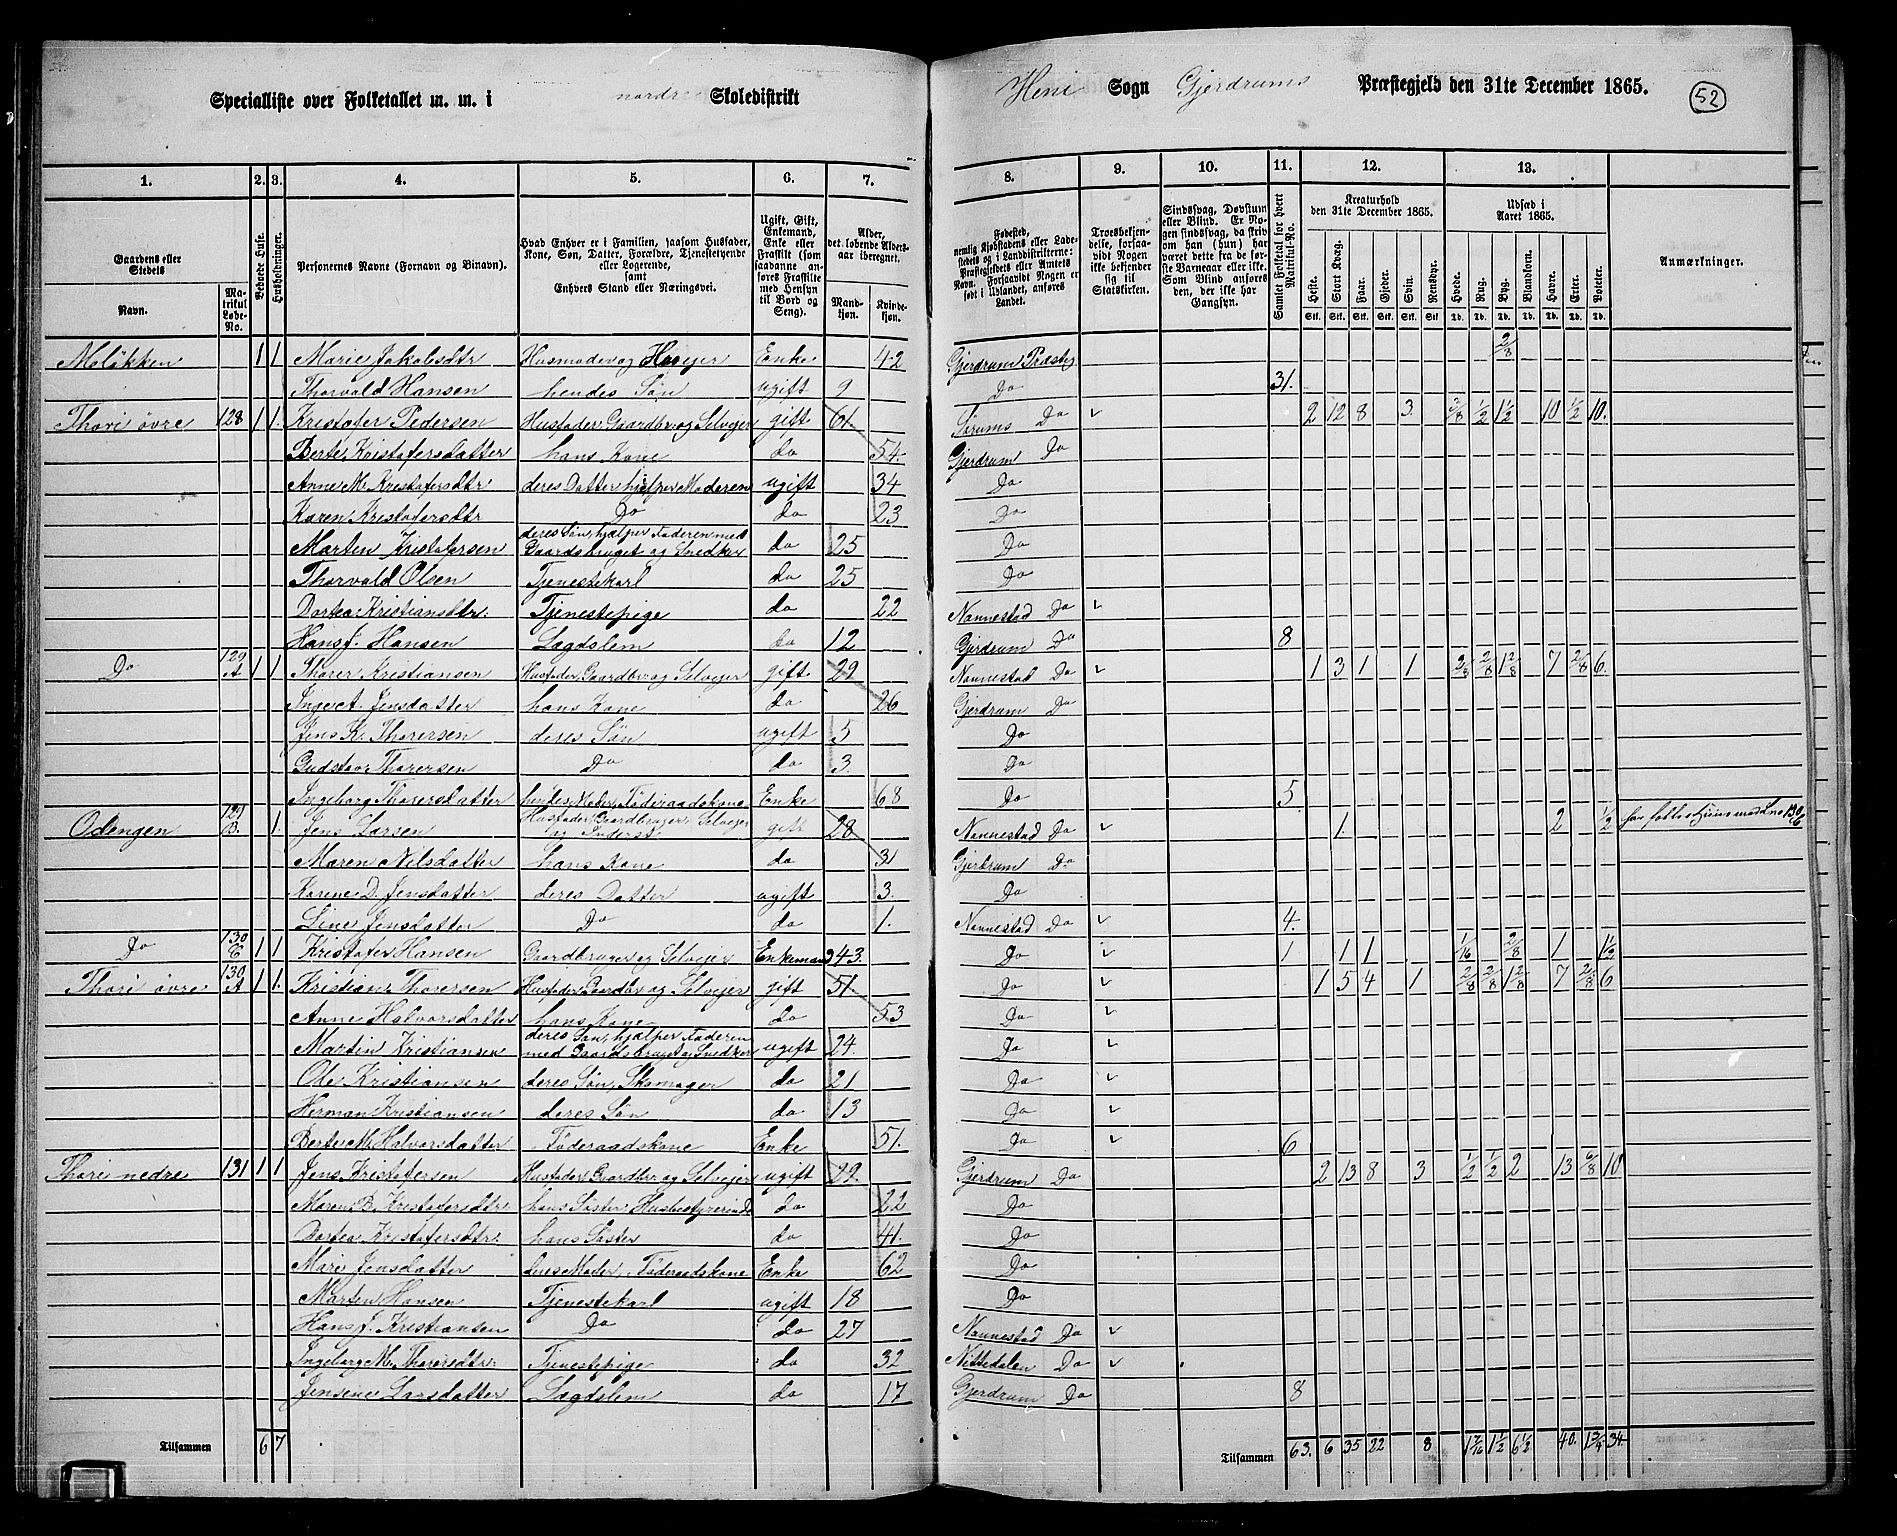 Specialliste over Folketallet m. m. i nordre Skoledistrikt Heni Sogn Gjerdrums Præstegjeld den 31te December 1865. 52
1. 2. 3. 4. 5. 6. 7. 8. 9. 10. 11. 12. 13.
Gaardens eller Stedets
Navn.
Matrikul Løbe-No.
Beboede Huse.
Husholdninger.
Personernes Navne (Fornavn og Binavn).
Hvad Enhver er i Familien, saasom Husfader, Kone, Søn, Datter, Forældre, Tjenestetyende eller Logerende,
samt
Enhvers Stand eller Næringsvei.
Ugift, Gift, Enkemand, Enke eller Fraskilt (som saadanne anføres Fraskilte med Hensyn til Bord og Seng).
Alder, det løbende Alders-aar iberegnet.
Mandkjøn.
Kvindekjøn.
Fødested,
nemlig Kjøbstadens eller Ladestedets og i Landdistrikterne: Præstegjeldets eller Amtets Navn. Forsaavidt Nogen er født i Udlandet, anføres Landet.
Troesbekjendelse, forsaavidt Nogen ikke bekjender sig til Statskirken.
Sindssvag, Døvstum eller Blind. Er Nogen sindssvag, da skrives om han (hun) har været dette fra de første Barneaar eller ikke. Som Blind anføres den, der ikke har Gangsyn.
Samlet Folketal for hvert Matrikul-No.
Kreaturhold den 31te December 1865.
Heste. Stort Kvæg. Faar. Gjeder. Svin. Rensdyr.
Stk. Stk. Stk. Stk. Stk. Stk.
Udsæd i Aaret 1865.
Hvede. Rug. Byg. Blandkorn. Havre. Erter. Poteter.
Td. Td. Td. Td. Td. Td. Td.
Anmærkninger.
Moløkken 1 1 Marie Jakobsdtr Husmoder og Enke 42 Gjerdrum Præsteg 2/8
Thorvald Hansen hendes Søn ugift 9 Do 31.
Thori øvre 128 1 1. Kristofer Pedersen Husfader, Gaardbr. og Selvejer gift 61. Sørums Do 2 12 8 3. 3/8 1/2 1 1/2 10 1/2 10.
Berte Kristofersdatter hans Kone do 54. Gjerdrum Do
Anne M. Kristofersdtr deres Datter hjelper Moderen ugift 34 Do
Karen Kristofersdtr Do do 23 Do
Marten Kristofersen deres Søn, hjælper Faderen med Gaardsbruget og Snedker do 25 Do
Thorvald Olsen Tjenestekarl do 25 Do
Dortea Kristiansdtr. Tjenestepige do 22 Nannestad Do
Hans J. Hansen Lægdslem do 12 Gjerdrum Do 8
Do 129 A 1 1 Thorer Kristiansen Husfader, Gaardbr og Selvejer gift 29 Nannestad Do 1 3 1 1 2/8 2/8 1 2/8 7 2/8 6.
Inge A. Jensdatter hans Kone do 26 Gjerdrum Do
Jens K. Thorersen deres Søn ugift 5 Do
Gudstav Thorersen Do do 3. Do
Ingeborg Thorersdatter hendes Moder, Føderaadskone Enke 68 Do 5
Odengen 129 B. 1. Jens Larsen Husfader, Gaardbruger, Selvejer og gift 28 Nannestad Do 1. 2 1/2
Maren Nilsdatter hans Kone do 31 Gjerdrum Do
Karine D. Jensdatter deres Datter ugift 3. Do
Line Jensdatter Do do 1. Nannestad Do 4.
Do 130 1 1 Kristofer Hansen Gaardbruger og Selvejer Enkemand 43. Do 1 1 1 1/16 2/8 1 1 1/2
Thori øvre 130 A 1 1. Kristian Thorersen Husfader, Gaardbr og Selvejer gift 51. Do 1 5 4 1 2/8 2/8 1 2/8 7 2/8 6
Anne Halvorsdatter hans Kone do 53 Do
Martin Kristiansen deres Søn, hjælper Faderen med Gaardsbruget og Snedker ugift 24. Do
Ole Kristiansen deres Søn, Skomager do 21 Do
Herman Kristiansen deres Søn do 13 Do
Berte M. Halvorsdatter Føderaadskone Enke 51. Do 6
Thori nedre 131 1 1 Jens Kristofersen Husfader, Gaardbr og Selvejer ugift 29. Gjerdrum Do 2 13 8 3 1/2 1/2 2 13 6/8 10
Maren B. Kristofersdtr. hans Søster, Husbestyrerinde do 22 Do
Dortea Kristofersdtr. hans Søster do 41. Do
Mari Jensdatter Moder, Føderaadskone Enke 62 Do
Marten Hansen Tjenestekarl ugift 18 Do
Hans J. Kristiansen Do do 27 Nannestad Do
Ingeborg M. Thorersdtr. Tjenestepige do 32 Nittedalen Do
Jensine Larsdatter Lægdslem do 17 Gjerdrum Do 8
Tilsammen 6 7 Tilsammen 63. 6 35 22 8 1 7/16 1 1/2 6 1/2 40. 1 3/4 34.